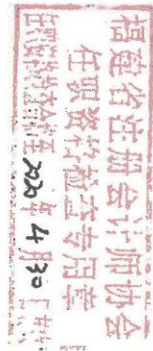 福建省注册会计师协会
任职资格检查专用章
至2020年4月30